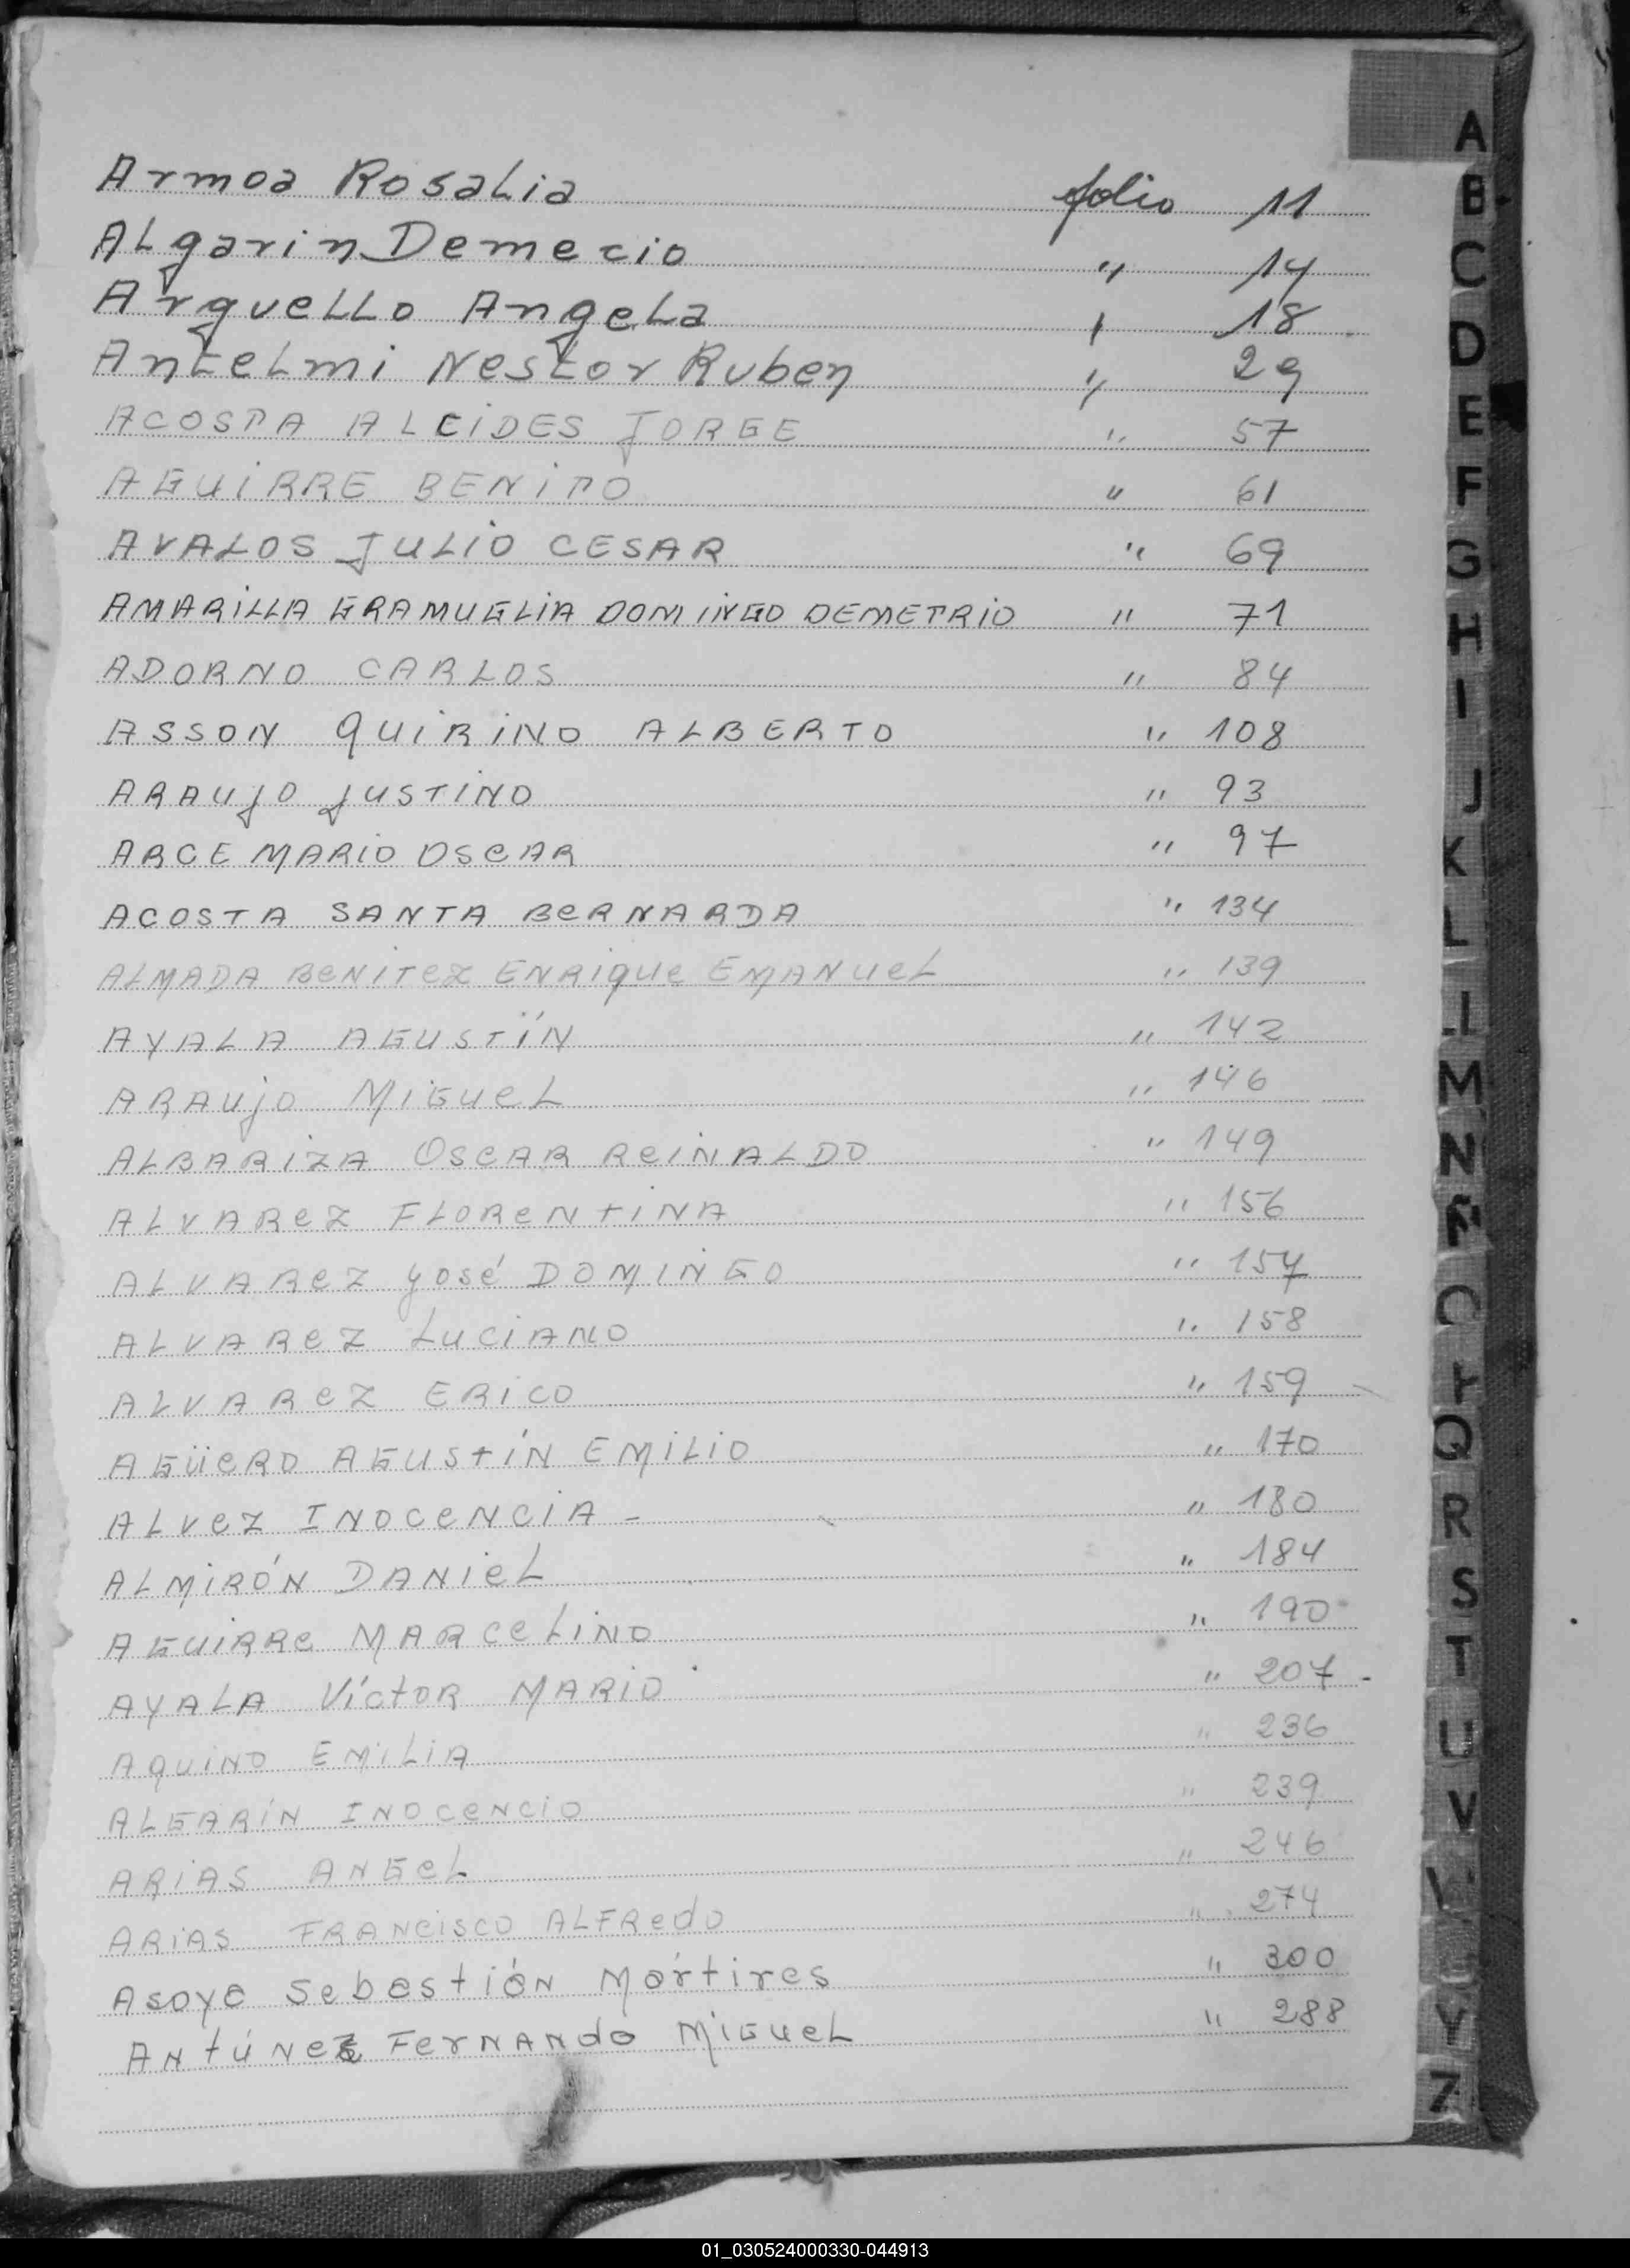 Armoa Rosalia folio 11
Algarin Demecio " 14
Arguello Angela " 18
Antelmi Nestor Ruben " 29
ACOSTA ALCIDES JORGE " 57
AGUIRRE BENITO " 61
AVALOS JULIO CESAR " 69
AMARILLA GRAMUGLIA DOMINGO DEMETRIO " 71
ADORNO CARLOS " 84
ASSON QUIRINO ALBERTO " 108
ARAUJO JUSTINO " 93
ARCE MARIO OSCAR " 97
ACOSTA SANTA BERNARDA " 134
ALMADA BENITEZ ENRIQUE EMANUEL " 139
AYALA AGUSTÍN " 142
ARAUJO MIGUEL " 146
ALBARIZA OSCAR REINALDO " 149
ALVAREZ FLORENTINA " 156
ALVAREZ YOSÉ DOMINGO " 157
ALVAREZ LUCIANO " 158
ALVAREZ ERICO " 159
AGÜERO AGUSTÍN EMILIO " 170
ALVEZ INOCENCIA - " 180
ALMIRÓN DANIEL " 184
AGUIRRE MARCELINO " 190
AYALA VÍCTOR MARIO " 207 -
AQUINO EMILIA " 236
ALGARÍN INOCENCIO " 239
ARIAS ANGEL " 246
ARIAS FRANCISCO ALFREDO " 274
Asoya Sebastián Mártires " 300
Antúnez Fernando Miguel " 288
A
B
C
D
E
F
G
H
I
J
K
L
M
N
Ñ
O
Q
R
S
T
U
V
Y
Z
01_030524000330-044913